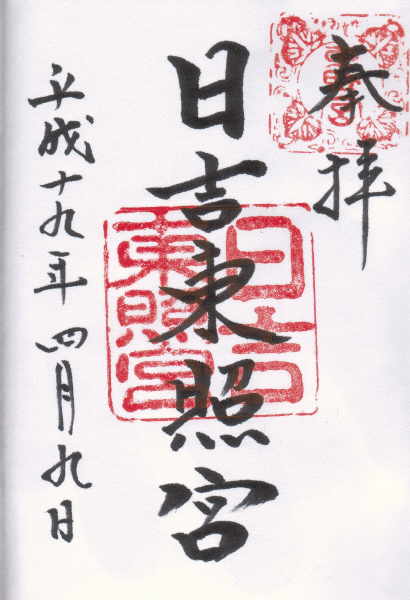 奉拝
日吉東照宮
日吉
東照宮
平成十九年四月九日